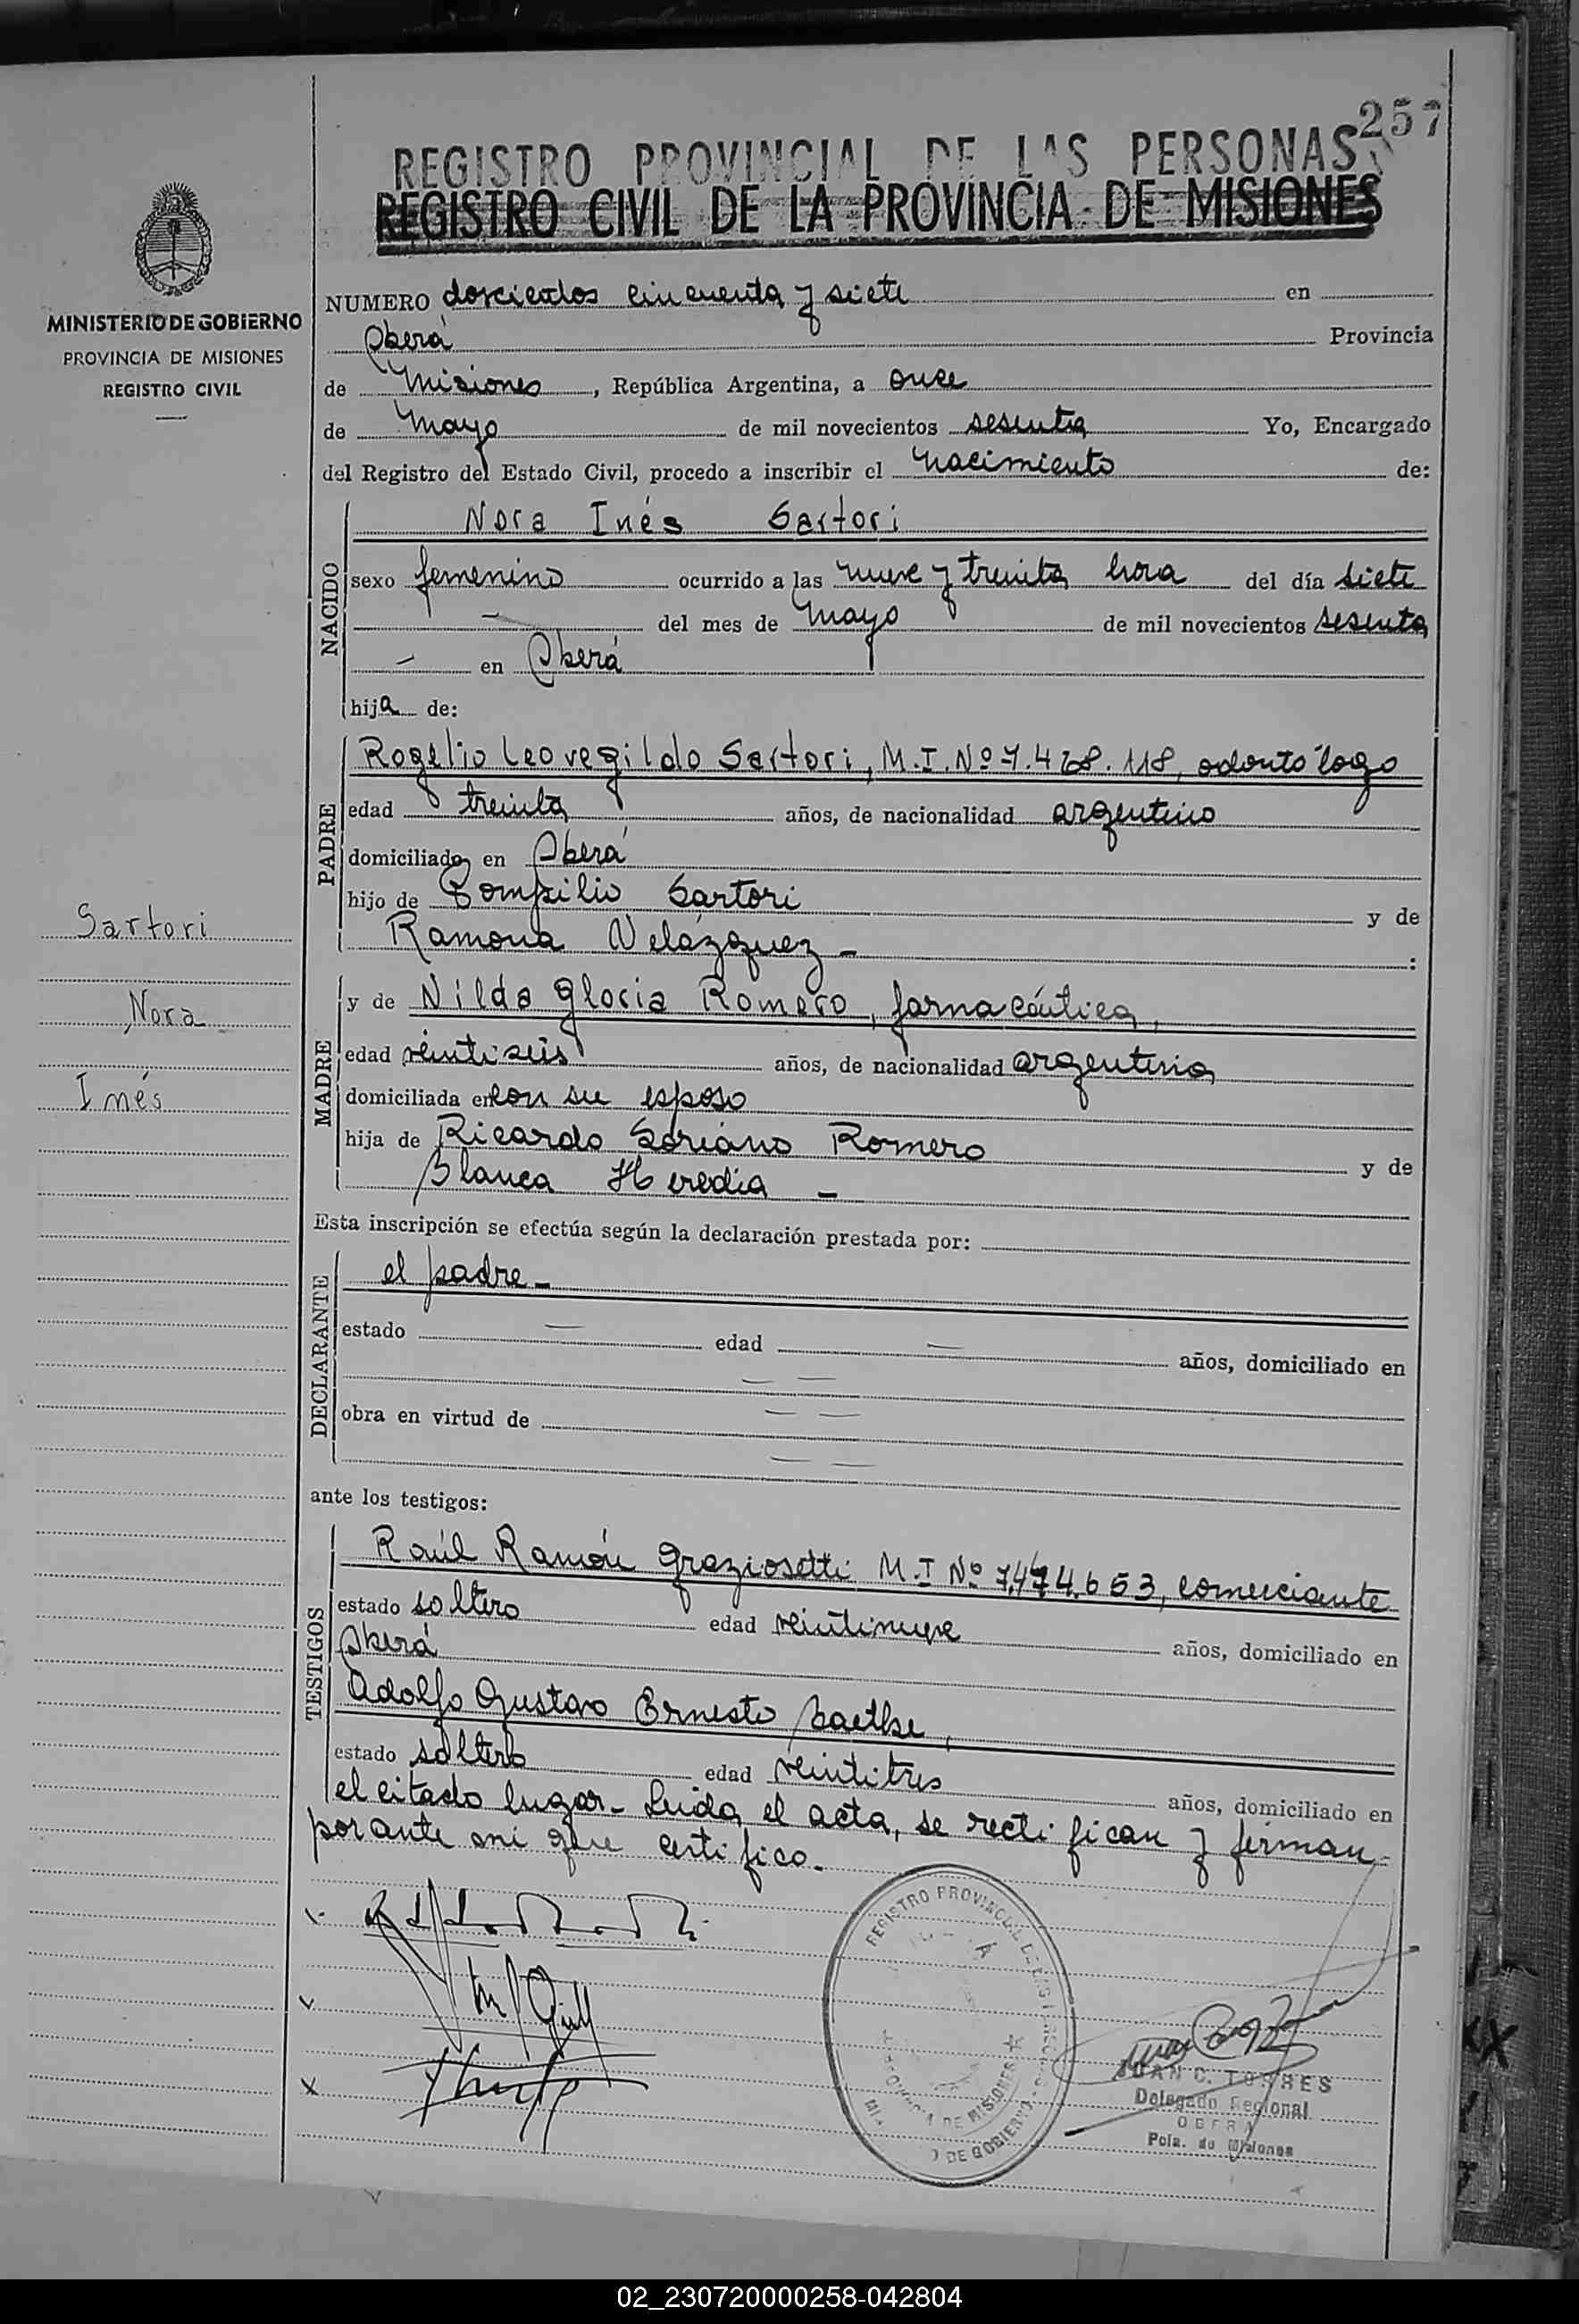 257
REGISTRO PROVINCIAL DE LAS PERSONAS
REGISTRO CIVIL DE LA PROVINCIA DE MISIONES
MINISTERIO DE GOBIERNO
PROVINCIA DE MISIONES
REGISTRO CIVIL
NUMERO doscientos cincuenta y siete en
Oberá Provincia
de Misiones, República Argentina, a once
de Mayo de mil novecientos sesenta Yo, Encargado
del Registro del Estado Civil, procedo a inscribir el nacimiento de:
NACIDO
Nora Inés Sartori
sexo femenino ocurrido a las nueve y treinta hora del día siete
— del mes de Mayo de mil novecientos sesenta
— en Oberá
hija de:
PADRE
Rogelio Leovegildo Sartori, M.I. Nº 7.468.118, odontólogo
edad treinta años, de nacionalidad argentino
domiciliado en Oberá
hijo de Pompilio Sartori y de
Ramona Velázquez - :
MADRE
y de Nilda Gloria Romero, farmacéutica,
edad veintiseis años, de nacionalidad argentina
domiciliada en con su esposo
hija de Ricardo Soriano Romero y de
Blanca Heredia -
Sartori
Nora
Inés
Esta inscripción se efectúa según la declaración prestada por:
DECLARANTE
el padre -
estado — edad — años, domiciliado en
— —
obra en virtud de — —
— —
ante los testigos:
TESTIGOS
Raúl Ramón Graziosetti M.I Nº 7.474.653, comerciante
estado soltero edad veintinueve años, domiciliado en
Oberá
Adolfo Gustavo Ernesto Paethe,
estado soltero edad veintitres años, domiciliado en
el citado lugar - Leída el acta, se rectifican y firman
por ante mi que certifico.
REGISTRO PROVINCIAL DE LAS PERSONAS
PROVINCIA DE MISIONES
DE GOBIERNO
JUAN C. TORRES
Delegado Regional
OBERA
Pcia. de Misiones
02_230720000258-042804